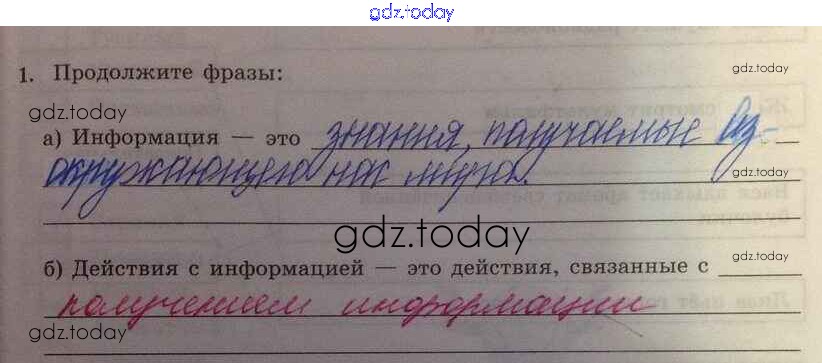 gdz.today
1. Продолжите фразы:
gdz.today
gdz.today
а) Информация — это знания, получаемые из
окружающего нас мира.
gdz.today
gdz.today
б) Действия с информацией — это действия, связанные с
gdz.today
получением информации
gdz.today